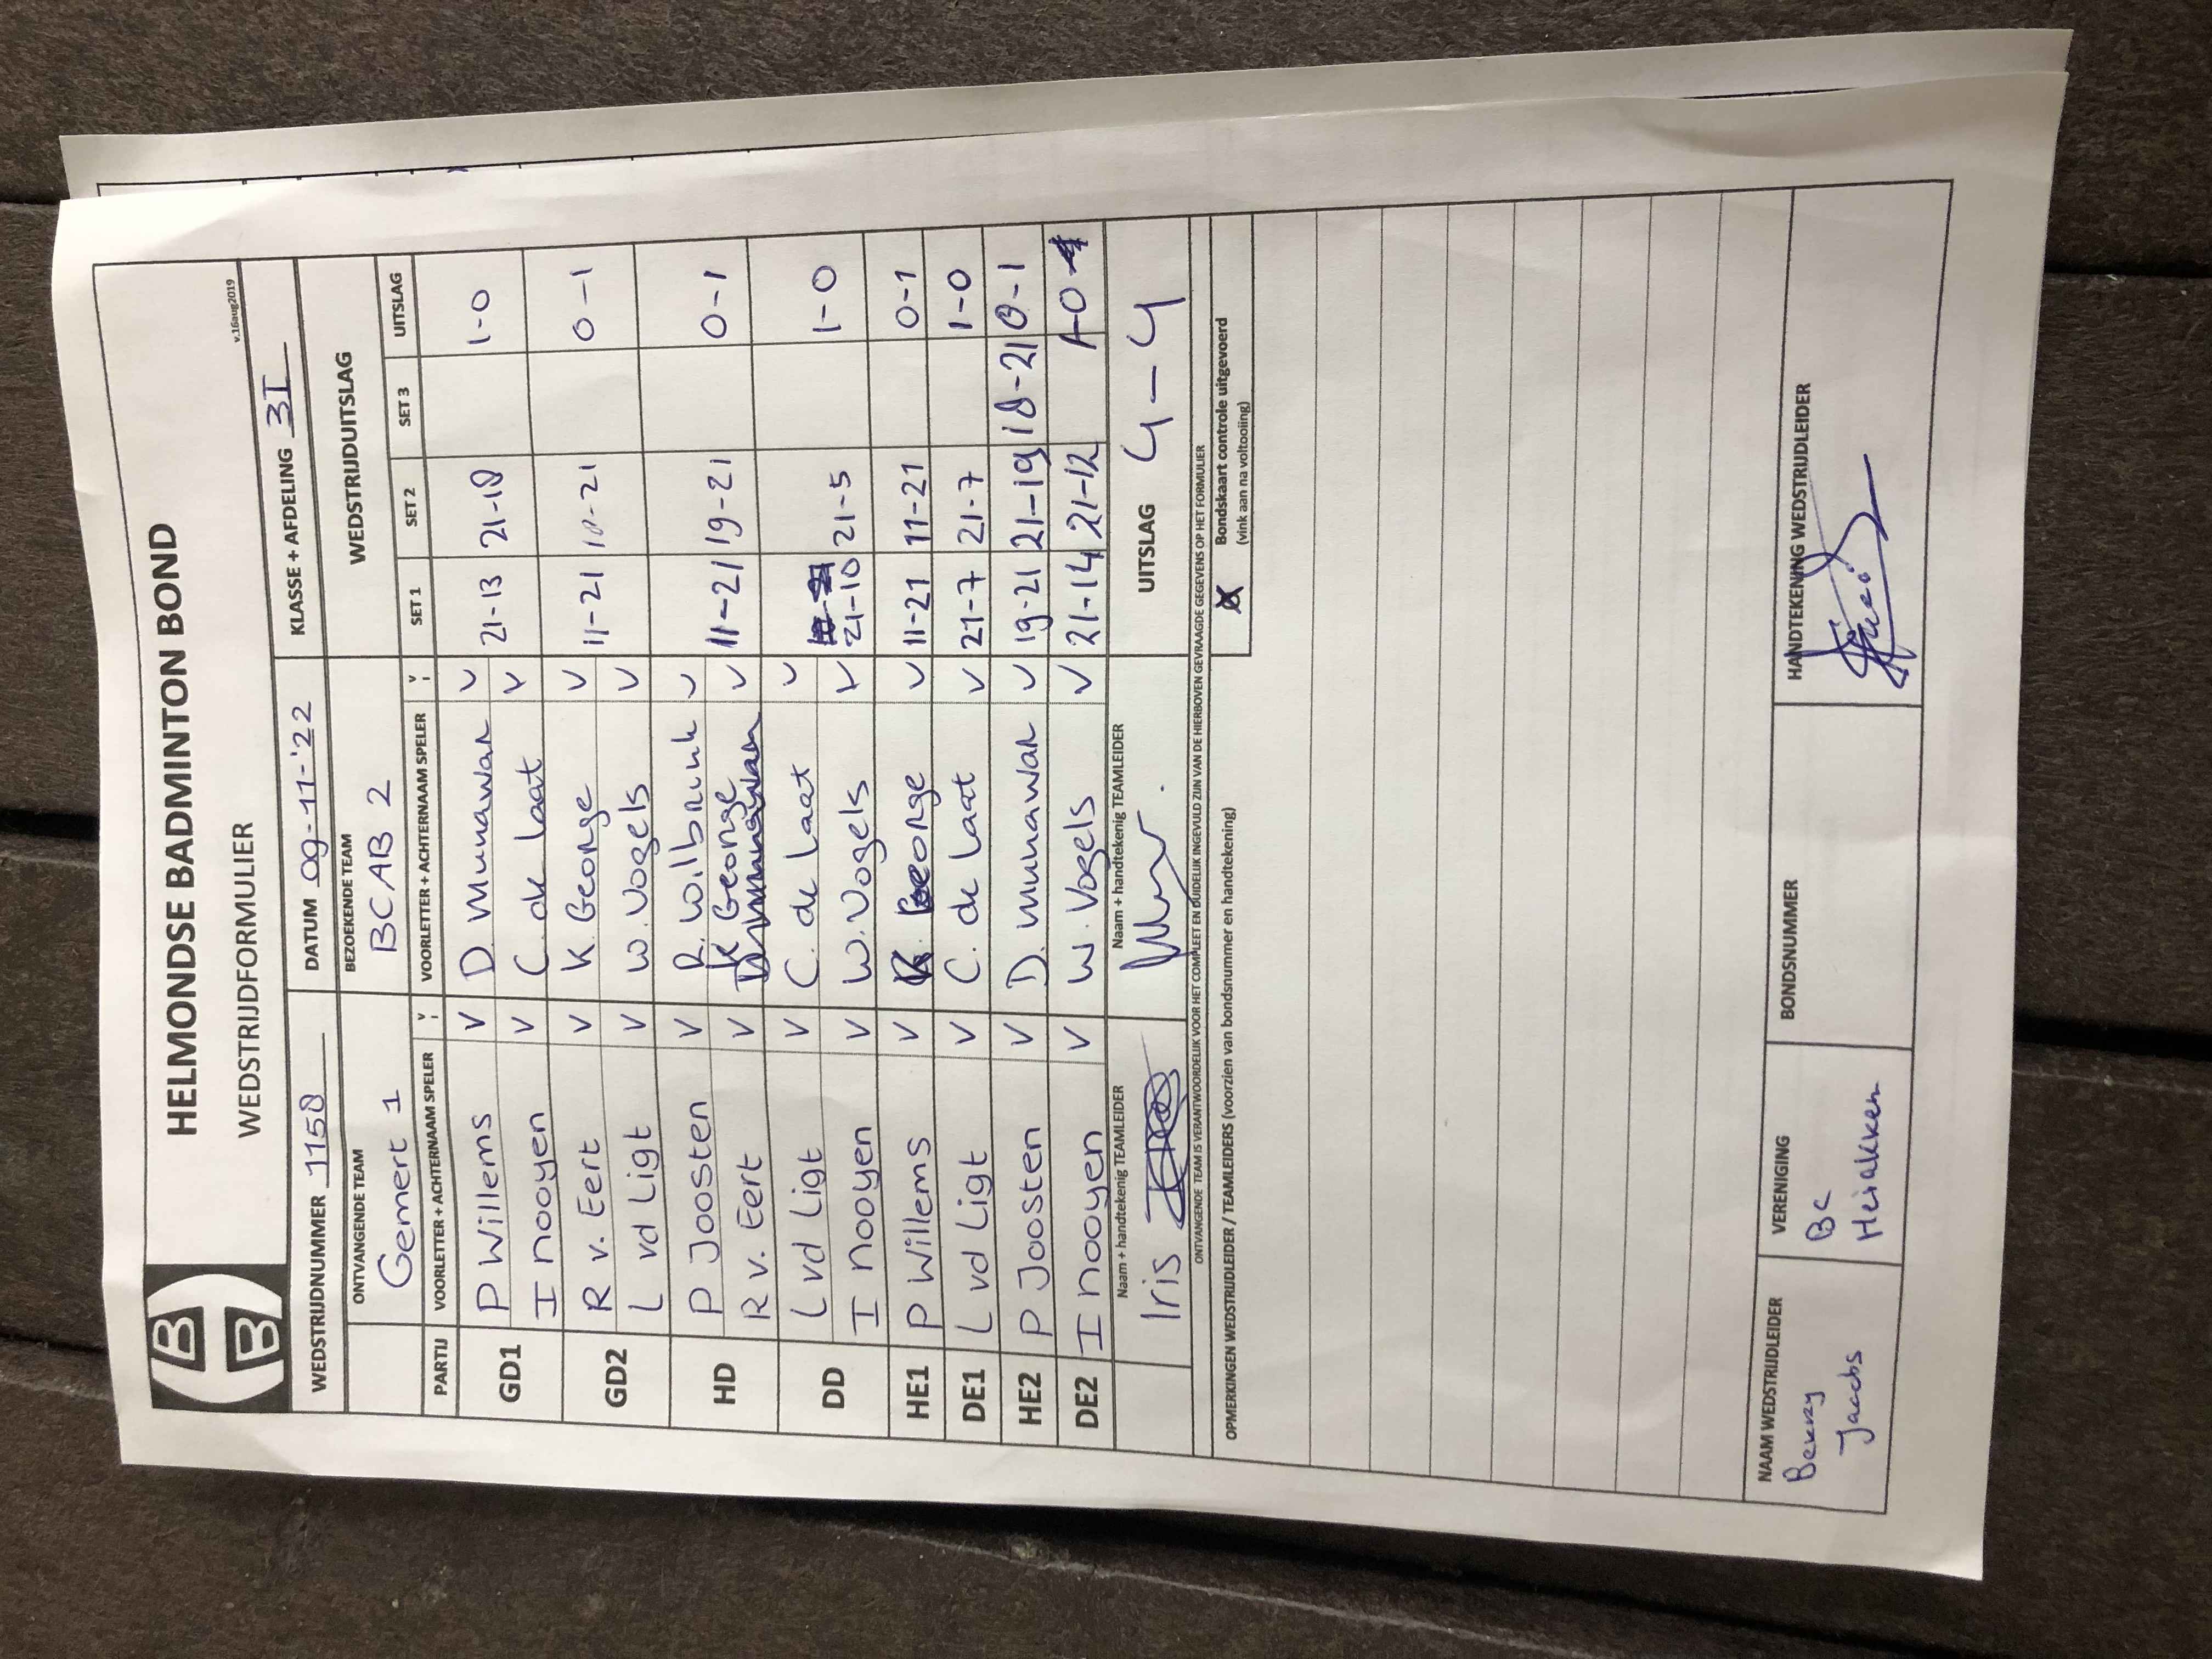 HELMONDSE BADMINTON BOND
WEDSTRIJDFORMULIER
v.16aug2019
WEDSTRIJDNUMMER 1158 DATUM 09-11-'22 KLASSE + AFDELING 3I
ONTVANGENDE TEAM BEZOEKENDE TEAM WEDSTRIJDUITSLAG
Gemert 1 BCAB 2
PARTIJ VOORLETTER + ACHTERNAAM SPELER V VOORLETTER + ACHTERNAAM SPELER V SET 1 SET 2 SET 3 UITSLAG
GD1 P Willems V D. Munawar V 21-13 21-18 1-0
I nooyen V C. de Laat V
GD2 R v. Eert V K George V 11-21 10-21 0-1
L vd Ligt V W. Vogels V
HD P Joosten V R. Wilbrink V 11-21 19-21 0-1
R v. Eert V K George V
DD L vd Ligt V C. de Laat V 21-10 21-5 1-0
I nooyen V W. Vogels V
HE1 P Willems V K. George V 11-21 11-21 0-1
DE1 L vd Ligt V C. de Laat V 21-7 21-7 1-0
HE2 P Joosten V D. Munawar V 19-21 21-19 18-21 0-1
DE2 I nooyen V W. Vogels V 21-14 21-12 1-0
Naam + handtekenig TEAMLEIDER Naam + handtekenig TEAMLEIDER UITSLAG 4-4
Iris
ONTVANGENDE TEAM IS VERANTWOORDELIJK VOOR HET COMPLEET EN DUIDELIJK INGEVULD ZIJN VAN DE HIERBOVEN GEVRAAGDE GEGEVENS OP HET FORMULIER
OPMERKINGEN WEDSTRIJDLEIDER / TEAMLEIDERS (voorzien van bondsnummer en handtekening) X Bondskaart controle uitgevoerd
(vink aan na voltooiing)
NAAM WEDSTRIJDLEIDER VERENIGING BONDSNUMMER HANDTEKENING WEDSTRIJDLEIDER
Berry BC
Jacobs Heiakker